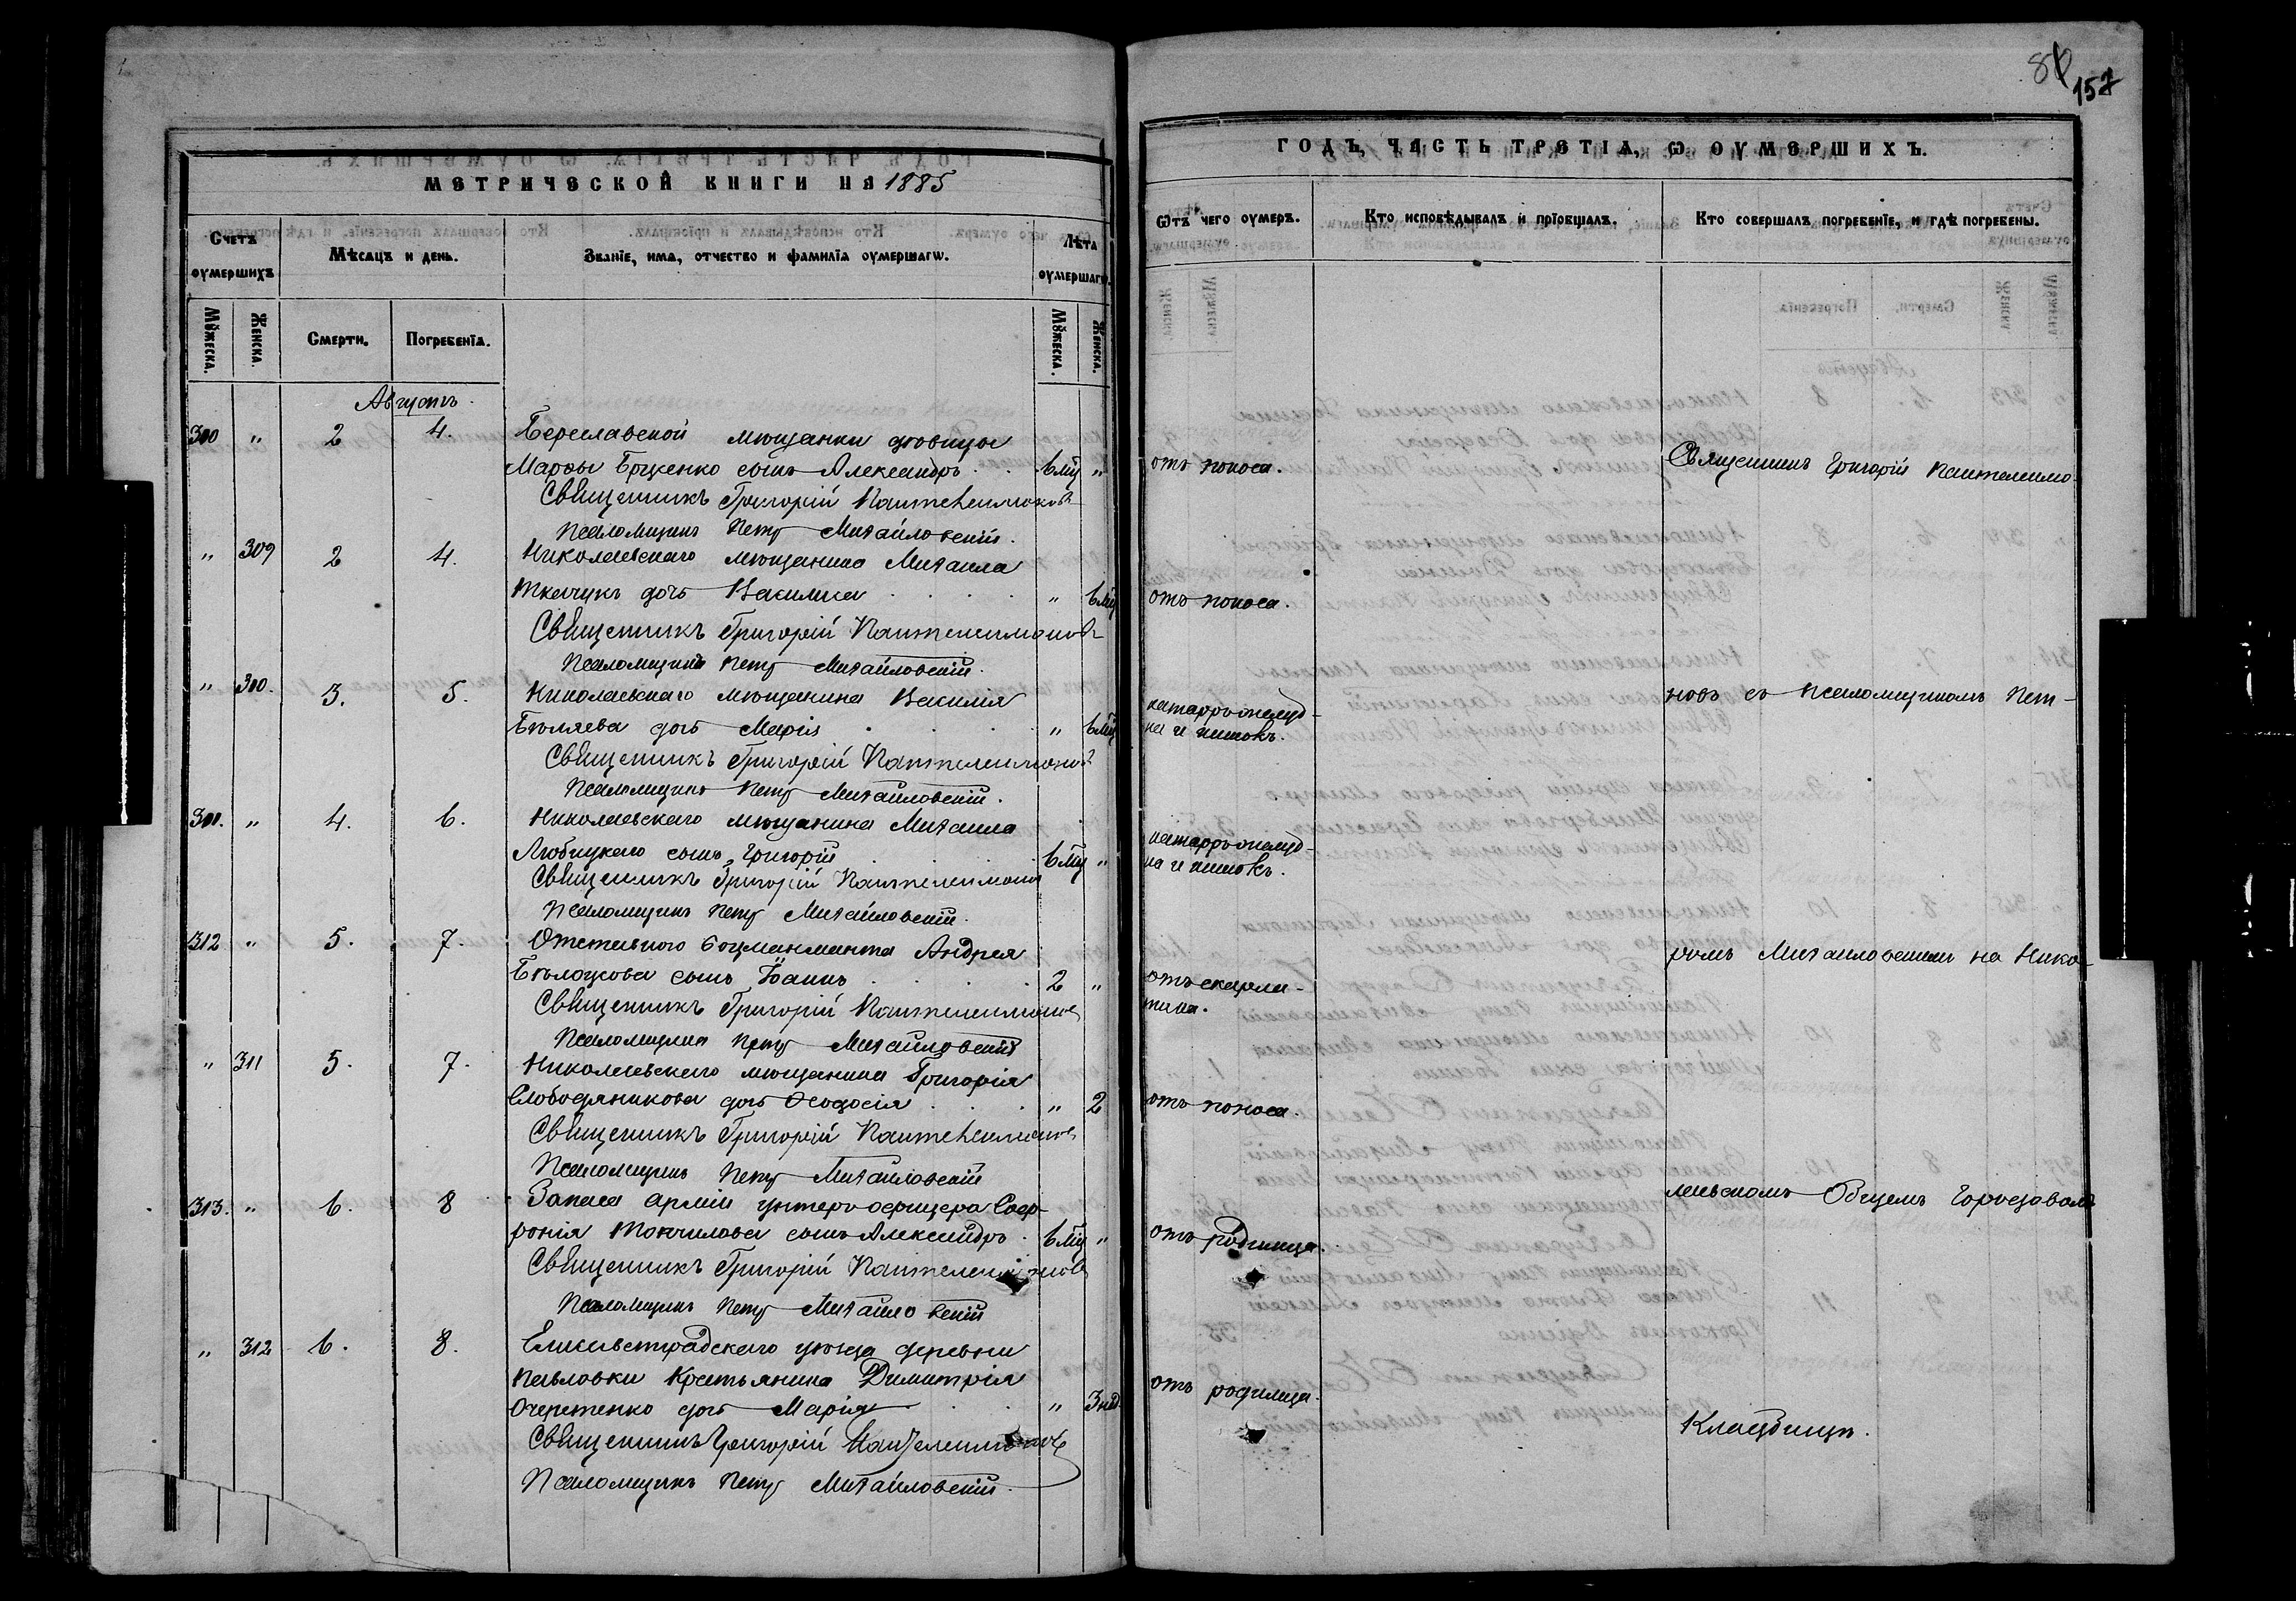 80
157
МЕТРИЧЕСКОЙ КНИГИ НА 1885
ГОДЪ, ЧАСТЬ ТРЕТІЯ, Ѡ ОУМЕРШИХЪ.
Счетъ оумершихъ
Мѣсяцъ и день.
Званіе, имя, отчество и фамилія оумершагѡ.
Лѣта оумершагѡ.
Ѿтъ чего оумеръ.
Кто исповѣдывалъ и пріобщалъ.
Кто совершалъ погребеніе, и гдѣ погребены.
Мꙋжеска.
Женска.
Смерти.
Погребенія.
Мꙋжеска.
Женска.
Августъ.
310 " 2 4. Береславской мѣщанки дѣвицы
Марфы Бруженко сынъ Александръ . . 6 мц " отъ поноса. Священникъ Григорій Пантелеимо-
Священникъ Григорій Пантелеимоновъ
Псаломщикъ Петръ Михайловскій.
" 309 2 4. Николаевскаго мѣщанина Михаила
Ткачукъ дочь Василиса . . . . " 6 мц отъ поноса.
Священникъ Григорій Пантелеимоновъ
Псаломщикъ Петръ Михайловскій.
" 310. 3. 5. Николаевскаго мѣщанина Василія катарръ желуд- новъ съ псаломщикомъ Пет-
Бѣляева дочь Марія . . . . " 6 мц ка и кишокъ.
Священникъ Григорій Пантелеимоновъ
Псаломщикъ Петръ Михайловскій.
311. " 4. 6. Николаевскаго мѣщанина Михаила катарръ желуд-
Любицкаго сынъ Григорій . . . . 6 мц " ка и кишокъ.
Священникъ Григорій Пантелеимоновъ
Псаломщикъ Петръ Михайловскій.
312 " 5. 7. Отставного боцманмата Андрея ромъ Михайловскимъ на Нико-
Бѣлоусова сынъ Іоаннъ . . . . 2 " отъ скарла-
тина.
Священникъ Григорій Пантелеимоновъ
Псаломщикъ Петръ Михайловскій
" 311 5. 7. Николаевскаго мѣщанина Григорія
Слободяникова дочь Ѳеодосія . . . " 2 отъ поноса.
Священникъ Григорій Пантелеимоновъ
Псаломщикъ Петръ Михайловскій
313. " 6. 8 Запаса арміи унтеръ-офицера Соф- лаевскомъ Общемъ Городовомъ
ронія Точилова сынъ Александръ . 6 мц " отъ родимца.
Священникъ Григорій Пантелеимоновъ
Псаломщикъ Петръ Михайловскій
" 312 6. 8. Елисаветградскаго уѣзда деревни
Павловки крестьянина Димитрія
Очеретенко дочь Марія . . " 3 нед. отъ родимца.
Священникъ Григорій Пантелеимоновъ Кладбищѣ.
Псаломщикъ Петръ Михайловскій.